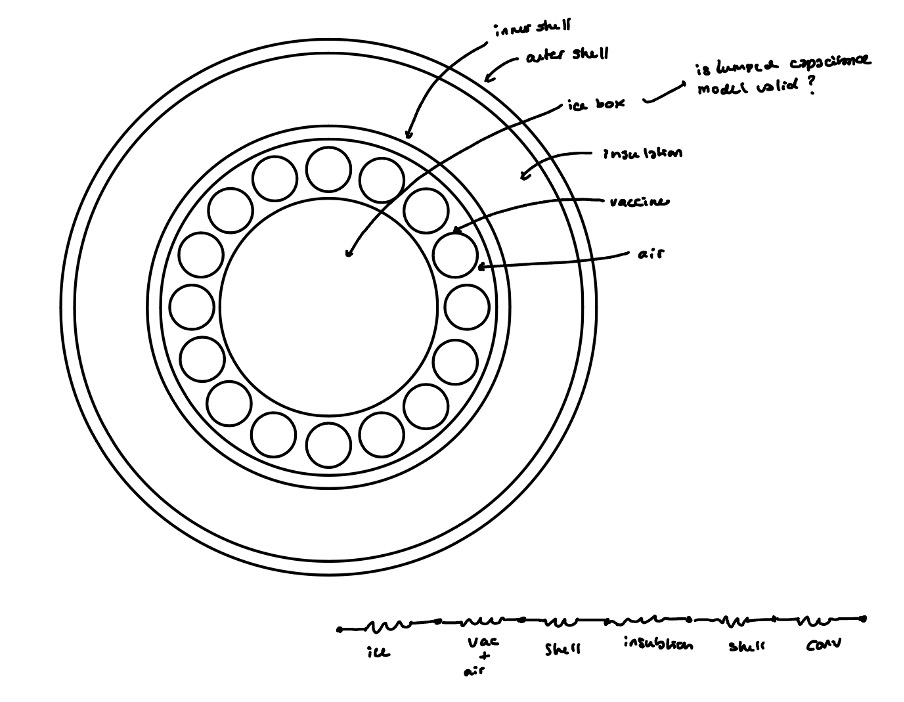 inner shell
outer shell
is lumped capacitance
model valid?
ice box
insulation
vaccine
air
ice
vac
+
air
shell
insulation
shell
conv